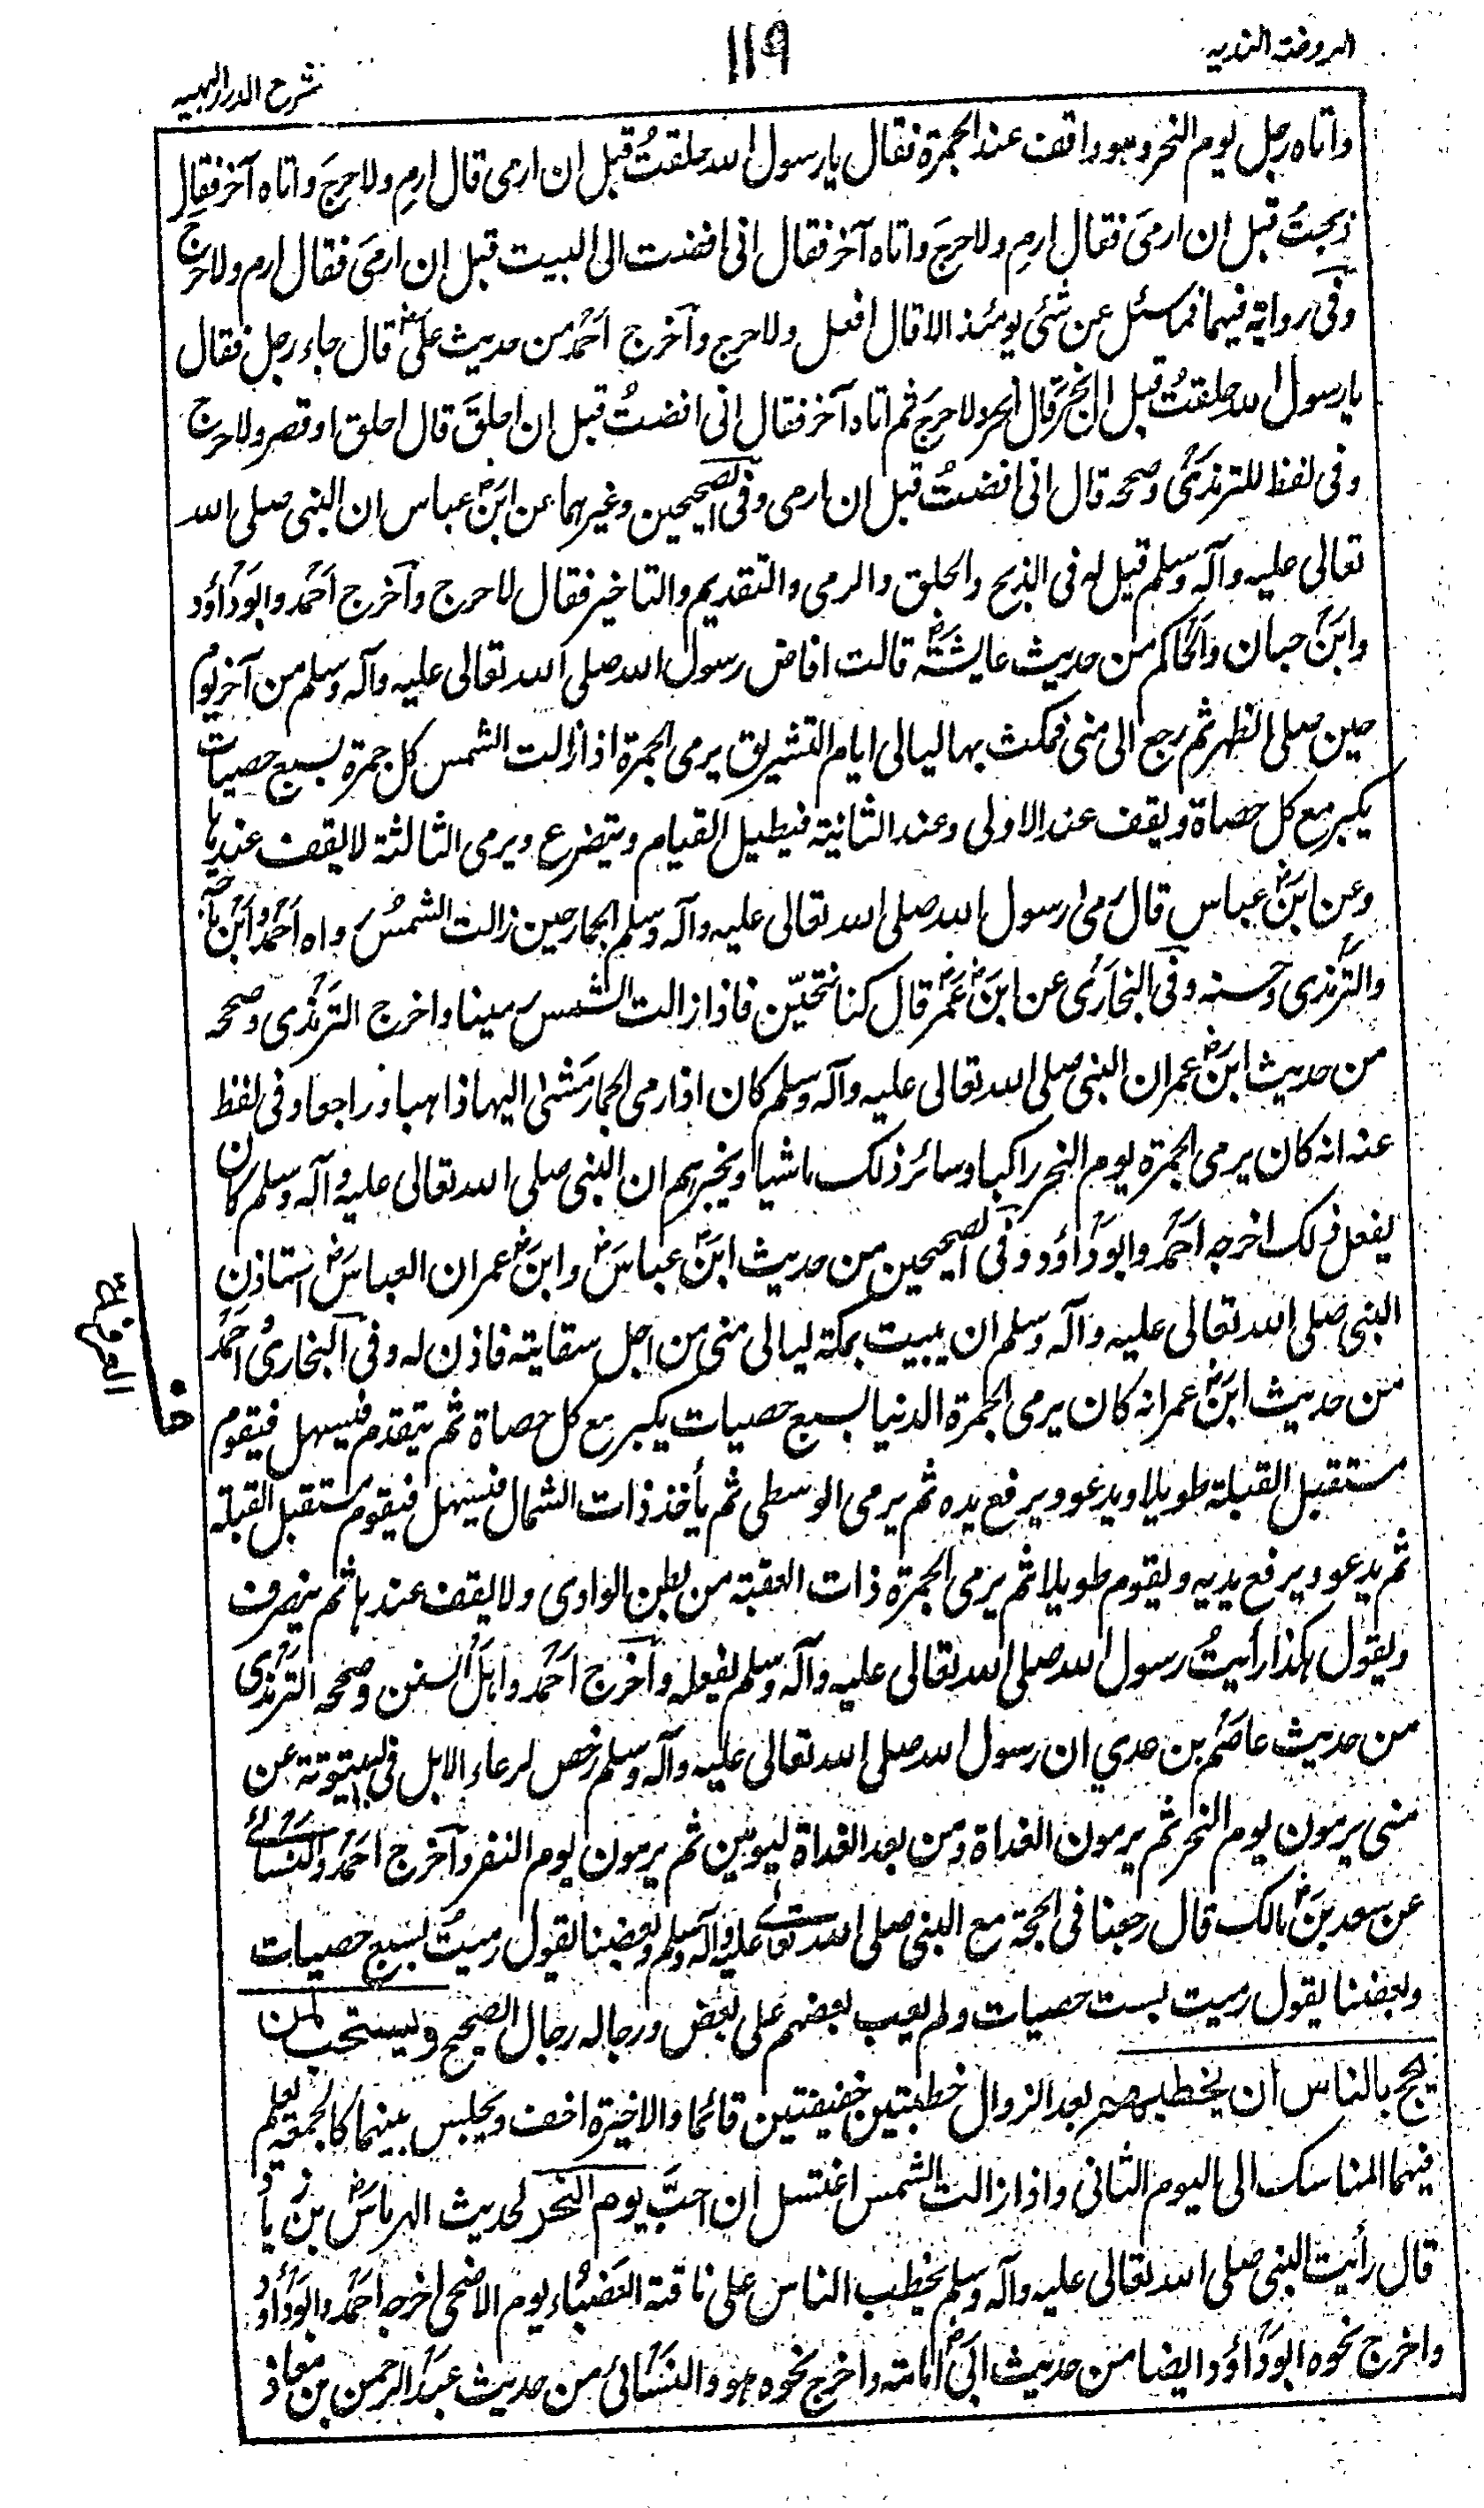 الروضة الندية
١١٩
شرح الدرر البهية
واتاه رجل يوم النحر وهو واقف عند الجمرة فقال يا رسول الله حلقتُ قبل ان ارمى قال ارمِ ولا حرجَ واتاه آخر فقال
ذبحتُ قبل ان ارمىَ فقال ارمِ ولا حرجَ واتاه آخر فقال انى افضت الى البيت قبل ان ارمىَ فقال ارم ولا حرج
وفى رواية فيهما فما سئل عن شئ يومئذ الا قال افعل ولا حرج وآخرج احمد من حديث علىؓ قال جاء رجل فقال
يا رسول الله حلقتُ قبل ان انحرَ قال انحر ولا حرجَ ثم اتاه آخر فقال انى افضتُ قبل ان احلقَ قال احلق او قصر ولا حرج
وفى لفظ للترمذى وصححه قال انى افضتُ قبل ان ارمى وفى الصحيحين وغيرهما عن ابنؓ عباس ان النبى صلى الله
تعالى عليه وآله وسلم قيل له فى الذبح والحلق والرمى والتقديم والتاخير فقال لا حرج وآخرج احمد وابوداؤد
وابن حبان والحاكم من حديث عايشةؓ قالت افاض رسول الله صلى الله تعالى عليه وآله وسلم من آخر يوم
حين صلى الظهر ثم رجع الى منى فمكث بها ليالى ايام التشريق يرمى الجمرة اذا زالت الشمس كل جمرة بسبع حصيات
يكبر مع كل حصاة ويقف عند الاولى وعند الثانية فيطيل القيام ويتضرع ويرمى الثالثة لا يقف عندها
وعن ابنؓ عباس قال رمى رسول الله صلى الله تعالى عليه وآله وسلم الجمار حين زالت الشمسُ رواه احمد وابن ماجة
والترمذى وحسنه وفى البخارى عن ابنؓ عمرؓ قال كنا نتحيّن فاذا زالت الشمس رمينا واخرج الترمذى وصححه
من حديث ابنؓ عمر ان النبى صلى الله تعالى عليه وآله وسلم كان اذا رمى الجمار مشىٰ اليها ذاهبا وراجعا وفى لفظ
عنه انه كان يرمى الجمرة يوم النحر راكبا وسائر ذلك ماشيا ويخبرهم ان النبى صلى الله تعالى عليه وآله وسلم كان
يفعل ذلك اخرجه احمد وابوداؤد وفى الصحيحين من حديث ابنؓ عباسؓ وابنؓ عمر ان العباسؓ استاذن
النبى صلى الله تعالى عليه وآله وسلم ان يبيت بمكة ليالى منى من اجل سقايته فاذن له وفى البخارى احمد
من حديث ابنؓ عمر انه كان يرمى الجمرة الدنيا بسبع حصيات يكبر مع كل حصاة ثم يتقدم فيسهل فيقوم
مستقبل القبلة طويلا ويدعو ويرفع يده ثم يرمى الوسطى ثم يأخذ ذات الشمال فيسهل فيقوم مستقبل القبلة
ثم يدعو ويرفع يديه ويقوم طويلا ثم يرمى الجمرة ذات العقبة من بطن الوادى ولا يقف عندها ثم ينصرف
ويقول هكذا رأيتُ رسول الله صلى الله تعالى عليه وآله وسلم يفعله وآخرج احمد واهل السنن وصححه الترمذى
من حديث عاصم بن عدي ان رسول الله صلى الله تعالى عليه وآله وسلم رخص لرعاء الابل فى البيتوتة عن
منى يرمون يوم النحر ثم يرمون الغداة ومن بعد الغداة ليومين ثم يرمون يوم النفر وآخرج احمد والنسائے
عن سعد بنؓ مالك قال رجعنا فى الحجة مع النبى صلى الله تعالے عليه وآله وسلم وبعضنا يقول رميتُ بسبع حصيات
وبعضنا يقول رميت بست حصيات ولم يعب بعضهم على بعض ورجاله رجال الصحيح ويستحب لمن
يحج بالناس ان يخطبهم بعد الزوال خطبتين خفيفتين قائما والاخيرة اخف ويجلس بينهما كالجمعة يعلم
فيهما المناسك الى اليوم الثانى واذا زالت الشمس اغتسل ان احبَّ يوم النحر لحديث الهرماسؓ بن زياد
قال رأيت النبى صلى الله تعالى عليه وآله وسلم يخطب الناس على ناقته العضباء يوم الاضحى اخرجه احمد وابوداؤد
واخرج نحوه ابوداؤد ايضا من حديث ابىؓ امامة واخرج نحوه هو والنسائى من حديث عبدالرحمن بن معاذ